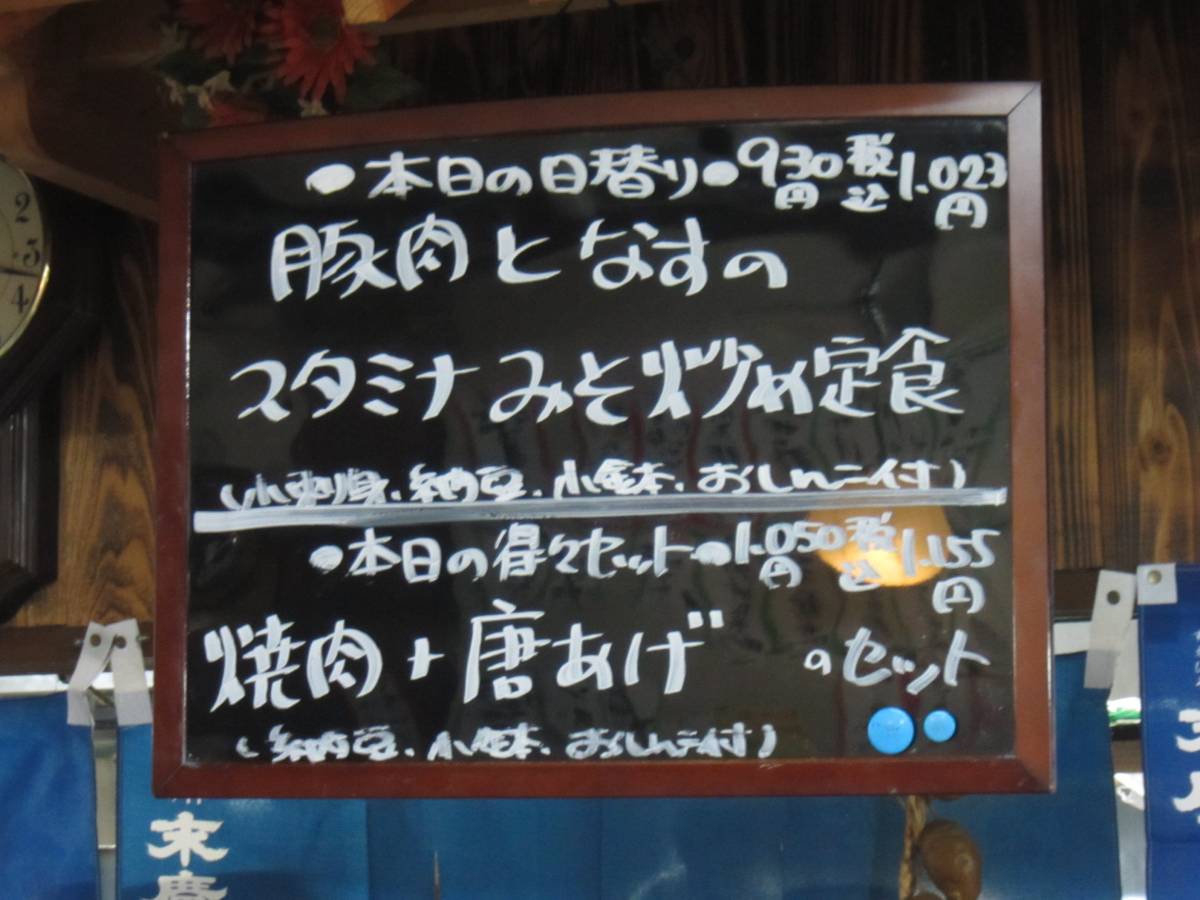 ●本日の日替り● 930円 税込 1.023円
豚肉となすの
スタミナみそ炒め定食
(小刺身、納豆、小鉢、おしんこ付)
●本日の得々セット● 1.050円 税込 1.155円
焼肉+唐あげのセット
(納豆、小鉢、おしんこ付)
2
3
4
末慶